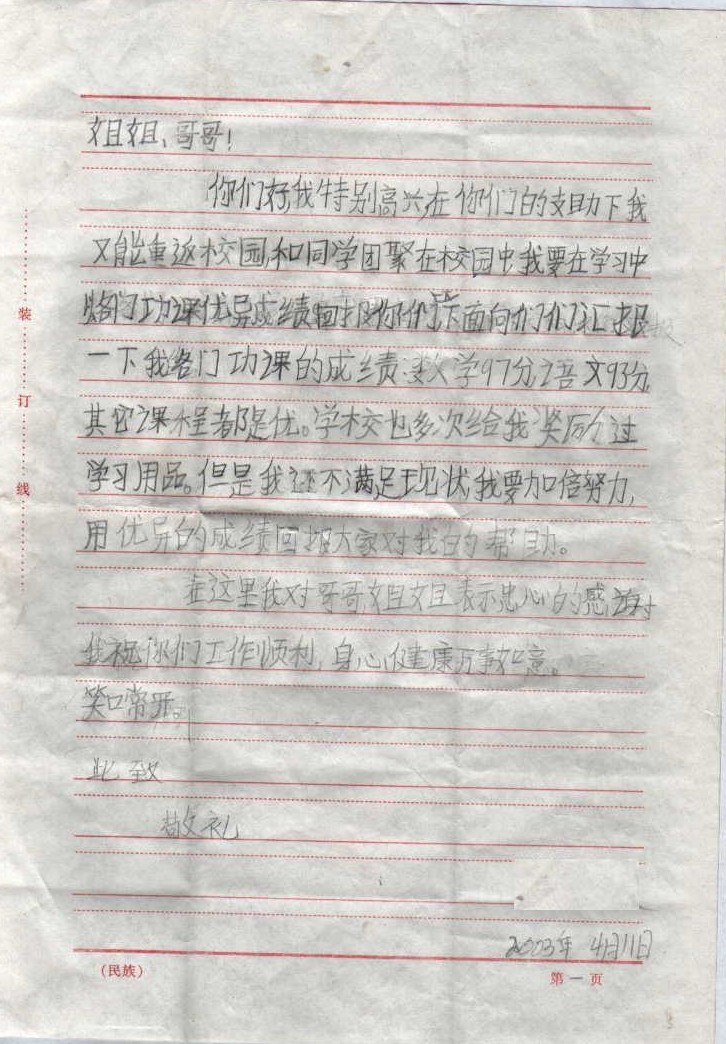 姐姐、哥哥!
你们好,我特别高兴,在你们的支助下我
又能重返校园,和同学团聚在校园中,我要在学习中
各门功课优异成绩回报你们,下面向你们汇报
一下我各门功课的成绩:数学97分,语文93分,
其它课程都是优。学校也多次给我奖历分过
学习用品。但是我还不满足于现状,我要加倍努力,
用优异的成绩回报大家对我的帮助。
在这里我对哥哥姐姐表示忠心的感谢
我祝你们工作顺利,身心健康万事如意。
笑口常开。
此致
敬礼
2003年 4月11日
装
订
线
(民族)
第一页